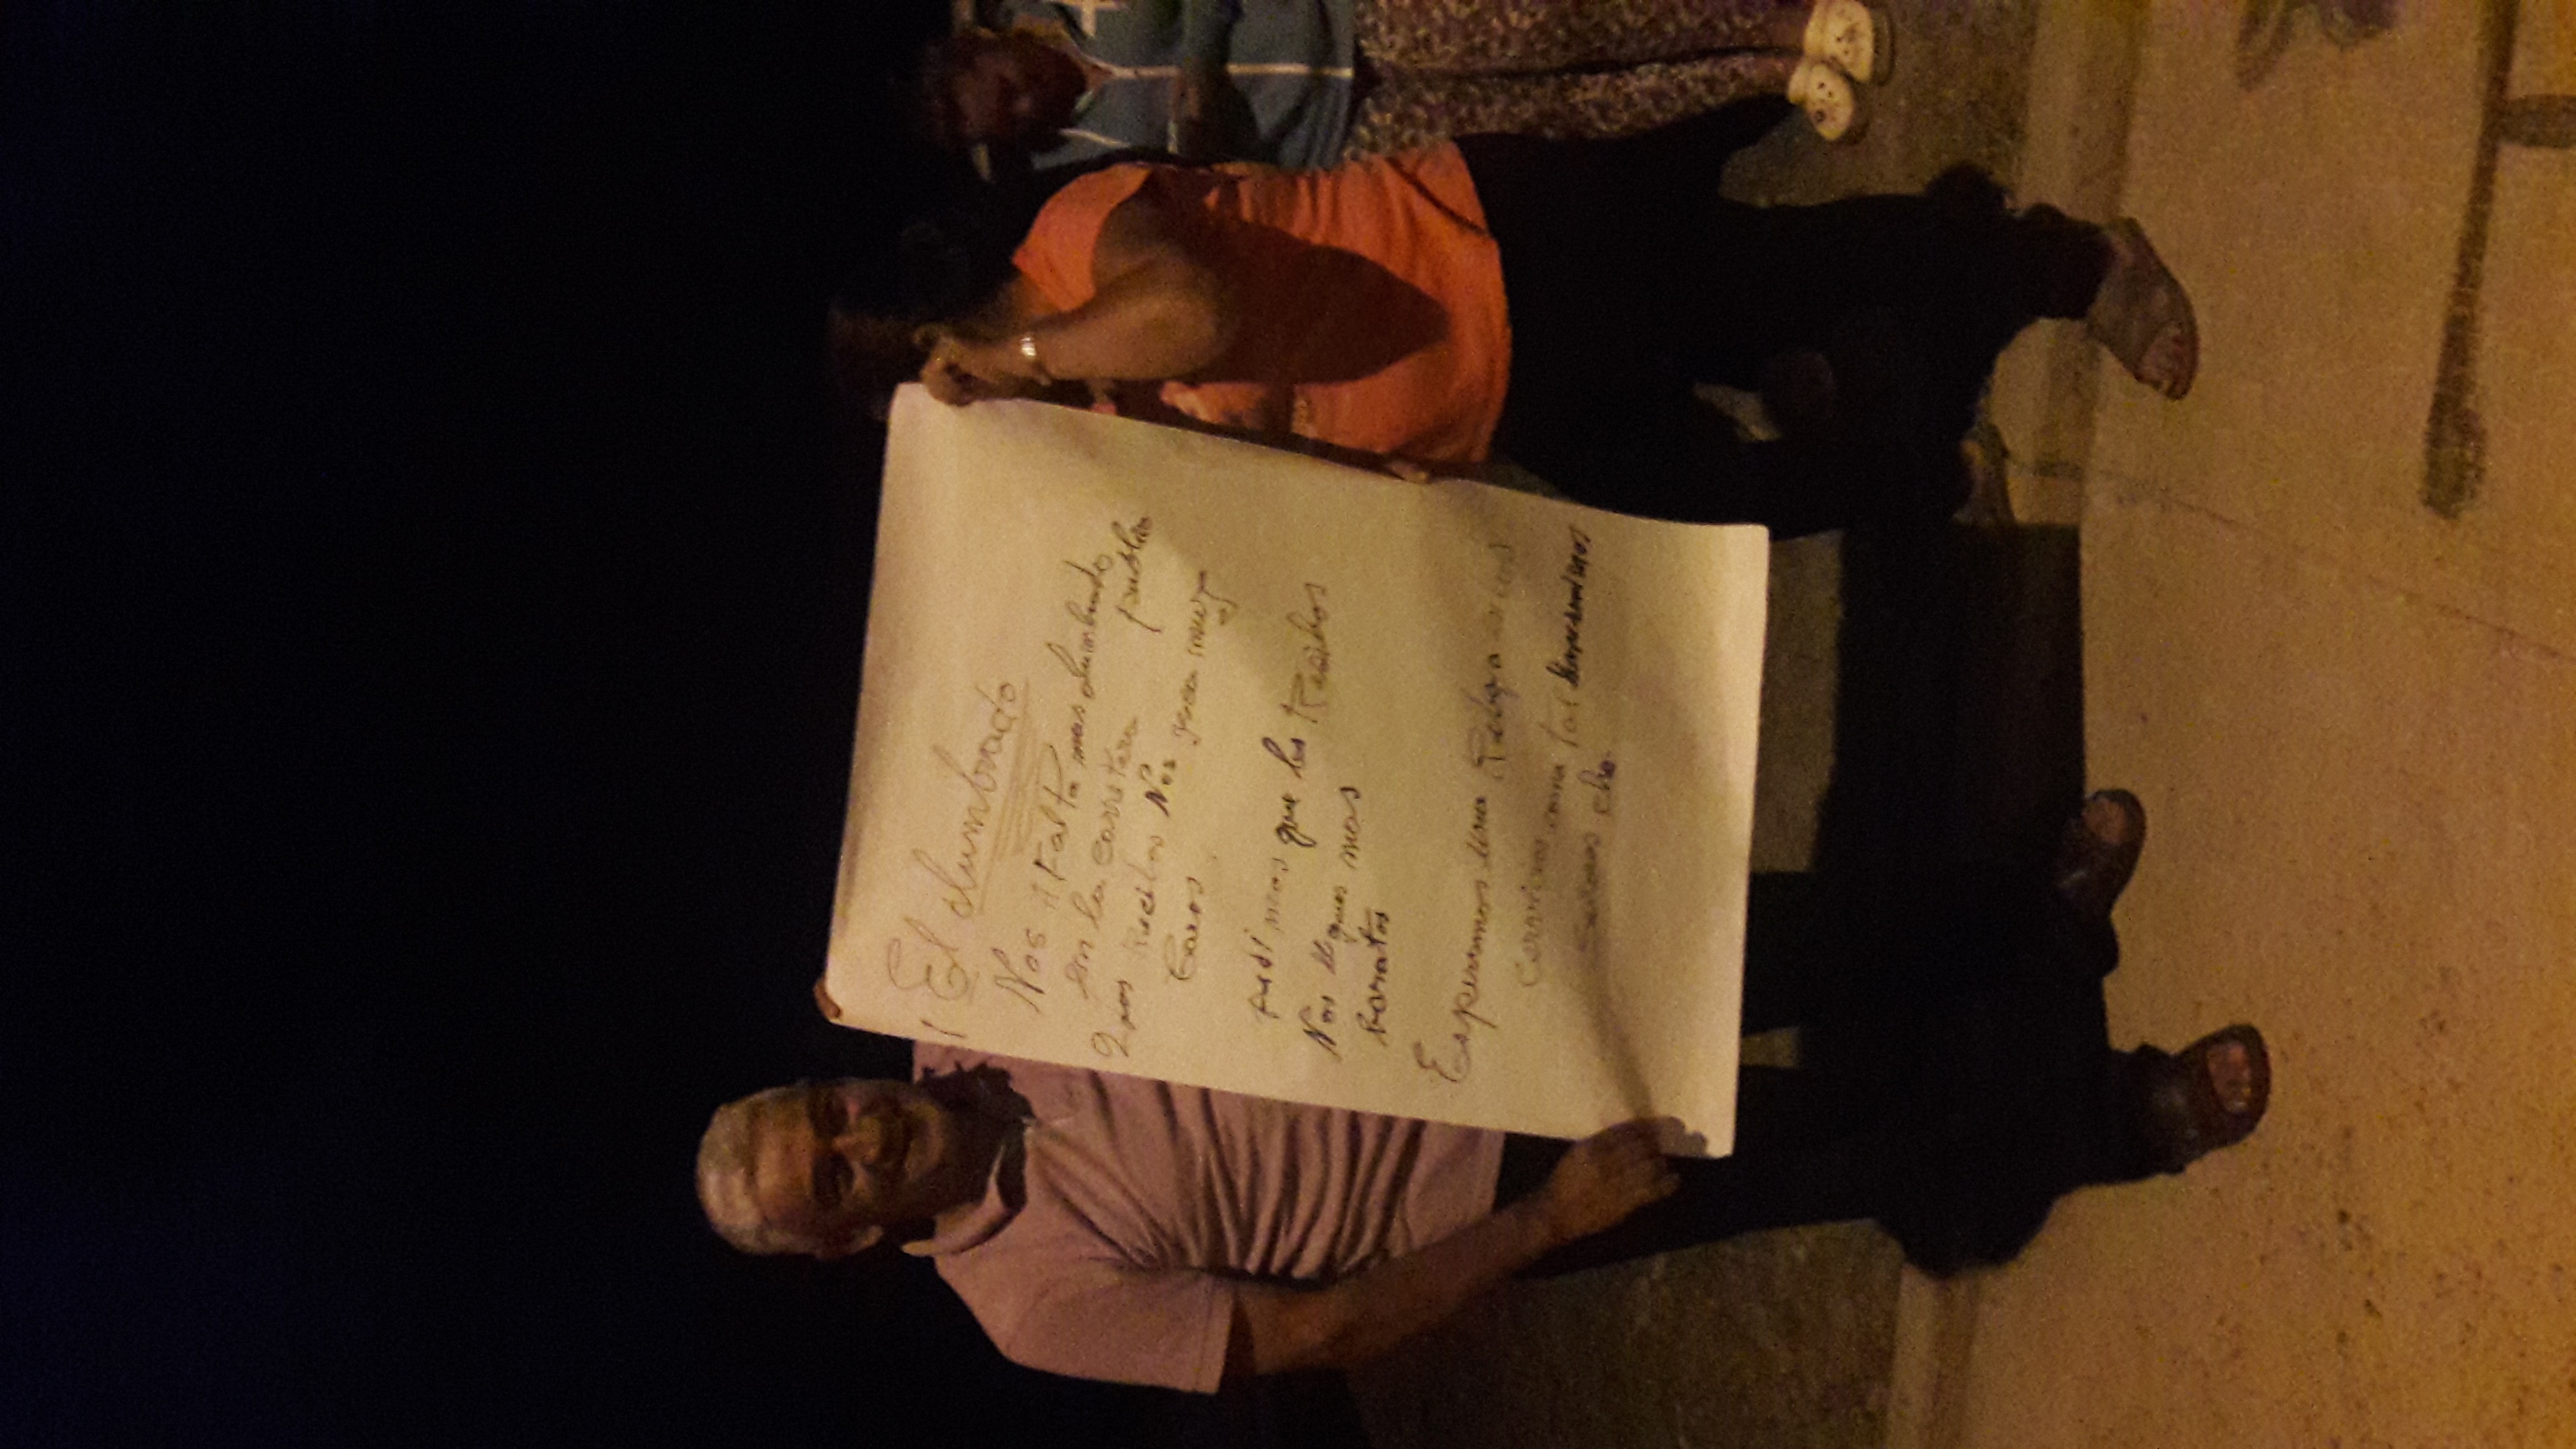 1 El alumbrado
Nos Falta mas alumbrado
en la carretera publico
2 Los Recibos Nos muy
Caros
pedimos que los Recibos
Nos llegues mas
baratos
Esperamos una Rebaja en los
cervicios como tal